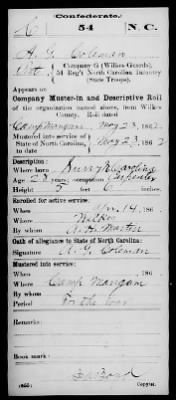 Confederate.
C 54 N.C.
A. G. Coleman
Pvt., Company G (Wilkes Guards),
54 Reg't North Carolina Infantry
(State Troops).
Appears on
Company Muster-in and Descriptive Roll
of the organization named above, from Wilkes
County. Roll dated
Camp Mangum, May 23, 186 2.
Mustered into service of
State of North Carolina, May 23, 186 2
Description:
Where born Surry N. Carolina
Age 28 years; occupation Carpenter
Height 5 feet 6 inches.
Enrolled for active service:
When 14, 186
Where Wilkes
By whom A. H. Martin
Oath of allegiance to State of North Carolina:
Signature A. G. Coleman
Mustered into service:
When , 186 .
Where Camp Mangum
By whom
Period For the war
Remarks:
Book mark:
(656) Copyist.